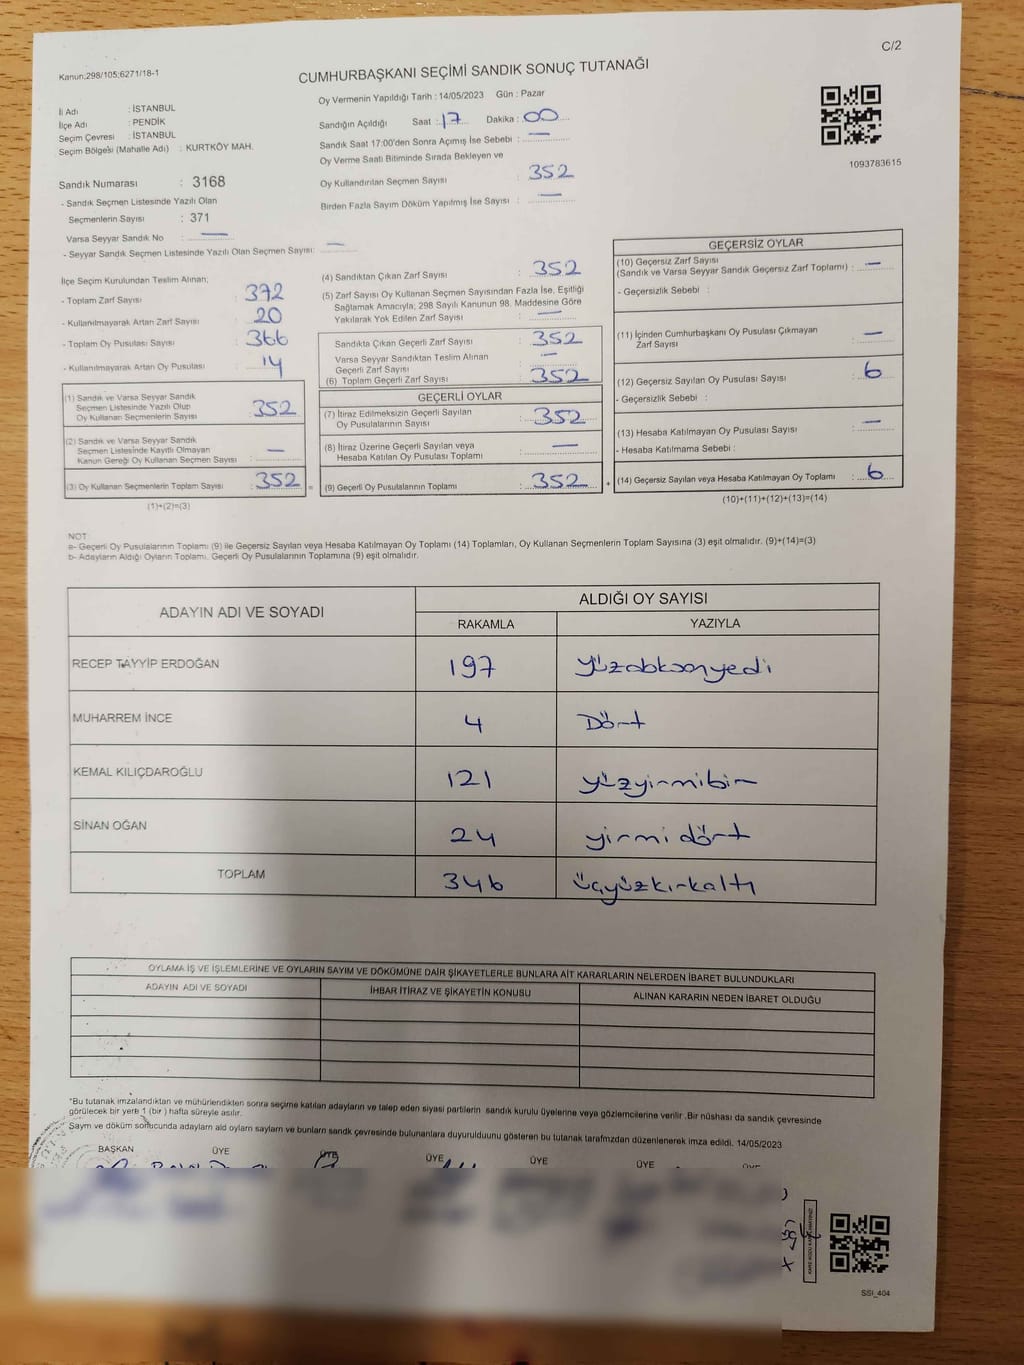 C/2
Kanun;298/105;6271/18-1
CUMHURBAŞKANI SEÇİMİ SANDIK SONUÇ TUTANAĞI
Oy Vermenin Yapıldığı Tarih : 14/05/2023 Gün : Pazar
İl Adı : İSTANBUL
İlçe Adı : PENDİK
Seçim Çevresi : İSTANBUL
Seçim Bölgesi (Mahalle Adı) : KURTKÖY MAH.
Sandığın Açıldığı Saat : 17 Dakika : 00
Sandık Saat 17:00'den Sonra Açımış İse Sebebi : —
Oy Verme Saati Bitiminde Sırada Bekleyen ve
Oy Kullandırılan Seçmen Sayısı : 352
Birden Fazla Sayım Döküm Yapılmış İse Sayısı : —
1093783615
Sandık Numarası : 3168
- Sandık Seçmen Listesinde Yazılı Olan
Seçmenlerin Sayısı : 371
Varsa Seyyar Sandık No : —
- Seyyar Sandık Seçmen Listesinde Yazılı Olan Seçmen Sayısı: —
İlçe Seçim Kurulundan Teslim Alınan;
- Toplam Zarf Sayısı : 372
- Kullanılmayarak Artan Zarf Sayısı : 20
- Toplam Oy Pusulası Sayısı : 366
- Kullanılmayarak Artan Oy Pusulası : 14
(1) Sandık ve Varsa Seyyar Sandık
Seçmen Listesinde Yazılı Olup
Oy Kullanan Seçmenlerin Sayısı : 352
(2) Sandık ve Varsa Seyyar Sandık
Seçmen Listesinde Kayıtlı Olmayan
Kanun Gereği Oy Kullanan Seçmen Sayısı : —
(3) Oy Kullanan Seçmenlerin Toplam Sayısı : 352 =
(1)+(2)=(3)
(4) Sandıktan Çıkan Zarf Sayısı : 352
(5) Zarf Sayısı Oy Kullanan Seçmen Sayısından Fazla İse, Eşitliği
Sağlamak Amacıyla; 298 Sayılı Kanunun 98. Maddesine Göre
Yakılarak Yok Edilen Zarf Sayısı : —
Sandıkta Çıkan Geçerli Zarf Sayısı : 352
Varsa Seyyar Sandıktan Teslim Alınan
Geçerli Zarf Sayısı : —
(6) Toplam Geçerli Zarf Sayısı : 352
GEÇERLİ OYLAR
(7) İtiraz Edilmeksizin Geçerli Sayılan
Oy Pusulalarının Sayısı : 352
(8) İtiraz Üzerine Geçerli Sayılan veya
Hesaba Katılan Oy Pusulası Toplamı : —
(9) Geçerli Oy Pusulalarının Toplamı : 352 +
GEÇERSİZ OYLAR
(10) Geçersiz Zarf Sayısı
(Sandık ve Varsa Seyyar Sandık Geçersiz Zarf Toplamı) : —
- Geçersizlik Sebebi :
(11) İçinden Cumhurbaşkanı Oy Pusulası Çıkmayan
Zarf Sayısı : —
(12) Geçersiz Sayılan Oy Pusulası Sayısı : 6
- Geçersizlik Sebebi :
(13) Hesaba Katılmayan Oy Pusulası Sayısı : —
- Hesaba Katılmama Sebebi :
(14) Geçersiz Sayılan veya Hesaba Katılmayan Oy Toplamı : 6
(10)+(11)+(12)+(13)=(14)
NOT:
a- Geçerli Oy Pusulalarının Toplamı (9) ile Geçersiz Sayılan veya Hesaba Katılmayan Oy Toplamı (14) Toplamları, Oy Kullanan Seçmenlerin Toplam Sayısına (3) eşit olmalıdır. (9)+(14)=(3)
b- Adayların Aldığı Oyların Toplamı, Geçerli Oy Pusulalarının Toplamına (9) eşit olmalıdır.
ADAYIN ADI VE SOYADI ALDIĞI OY SAYISI
RAKAMLA YAZIYLA
RECEP TAYYİP ERDOĞAN 197 yüzdoksanyedi
MUHARREM İNCE 4 Dört
KEMAL KILIÇDAROĞLU 121 yüzyirmibir
SİNAN OĞAN 24 yirmi dört
TOPLAM 346 üçyüzkırkaltı
OYLAMA İŞ VE İŞLEMLERİNE VE OYLARIN SAYIM VE DÖKÜMÜNE DAİR ŞİKAYETLERLE BUNLARA AİT KARARLARIN NELERDEN İBARET BULUNDUKLARI
ADAYIN ADI VE SOYADI İHBAR İTİRAZ VE ŞİKAYETİN KONUSU ALINAN KARARIN NEDEN İBARET OLDUĞU
*Bu tutanak imzalandıktan ve mühürlendikten sonra seçime katılan adayların ve talep eden siyasi partilerin sandık kurulu üyelerine veya gözlemcilerine verilir .Bir nüshası da sandık çevresinde
görülecek bir yere 1 (bir ) hafta süreyle asılır.
Saym ve döküm sonucunda adaylarn ald oylarn saylarn ve bunlarn sandk çevresinde bulunanlara duyurulduunu gösteren bu tutanak tarafmzdan düzenlenerek imza edildi. 14/05/2023
BAŞKAN ÜYE ÜYE ÜYE ÜYE ÜYE ÜYE
SSİ_404